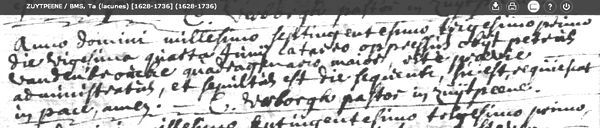 ZUYTPEENE / BMS, Ta (lacunes) [1628-1736] (1628-1736)
pastor in Zuytpeene
Anno domini millesimo septingentesimo trigesimo primo
die vigesima quarta Junii catarro oppressus obijt petrus
vandenbroucke quadragenario maior, rite
administratis, et sepultus est die sequente, qui est requiescat
in pace, amen. C. Verborgh pastor in Zuytpeene.
millesimo septingentesimo trigesimo primo,